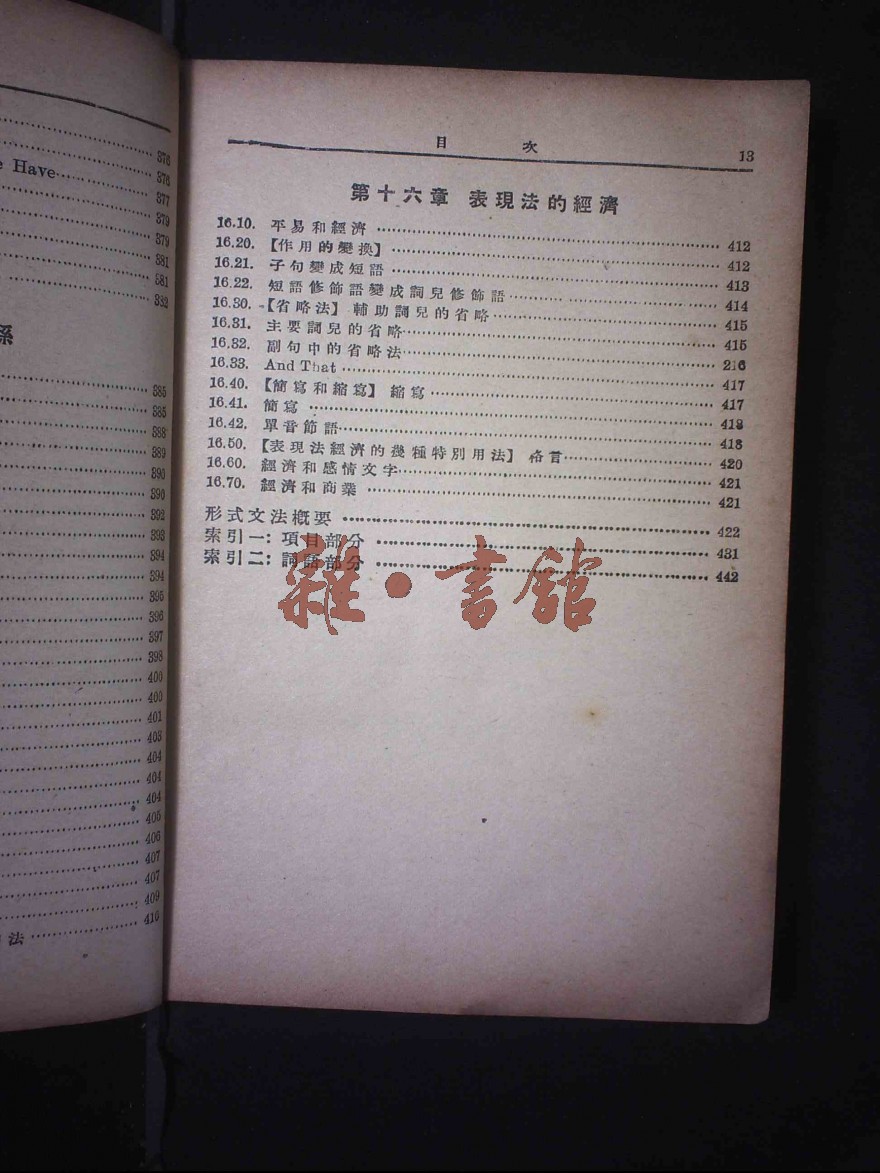 e Have 376
376
377
379
379
381
381
382
係
385
385
388
389
390
390
392
393
394
394
395
396
397
398
400
400
401
403
404
404
404
405
406
407
407
409
法 410
目 次 13
第十六章 表現法的經濟
16.10. 平易和經濟 412
16.20. 【作用的變換】 412
16.21. 子句變成短語 413
16.22. 短語修飾語變成詞兒修飾語 414
16.30. 【省略法】 輔助詞兒的省略 415
16.31. 主要詞兒的省略 415
16.32. 副句中的省略法 216
16.33. And That 417
16.40. 【簡寫和縮寫】 縮寫 417
16.41. 簡寫 418
16.42. 單音節語 418
16.50. 【表現法經濟的幾種特別用法】 格言 420
16.60. 經濟和感情文字 421
16.70. 經濟和商業 421
形式文法概要 422
索引一: 項目部分 431
索引二: 詞語部分 442
雜·書館